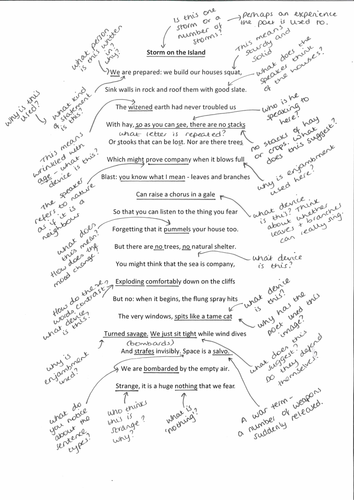 is this one
storm or a
number of
storms?
perhaps an experience
the poet is used to.
what person
is this written
in?
why?
Storm on the Island
This means
sturdy and
solid
We are prepared: we build our houses squat,
why is this
used?
what kind
of statement
is this?
what does the
speaker think
of the houses?
Sink walls in rock and roof them with good slate.
The wizened earth had never troubled us
who is he
speaking to
here?
With hay, so as you can see, there are no stacks
what letter is repeated?
This means
wrinkled with
age - what
device is this?
no stacks of hay
or crops. What
does this suggest?
Or stooks that can be lost. Nor are there trees
Which might prove company when it blows full
The speaker
refers to nature
as if it is a
neighbour
why is enjambment
used here?
Blast: you know what I mean - leaves and branches
Can raise a chorus in a gale
what device
is this? Think
about whether
leaves + branches
can really
sing.
So that you can listen to the thing you fear
what does
this mean?
How does the
mood change?
Forgetting that it pummels your house too.
But there are no trees, no natural shelter.
what device
is this?
You might think that the sea is company,
How do these
words contrast?
what device
is this?
Exploding comfortably down on the cliffs
what device
is this?
But no: when it begins, the flung spray hits
why has the
poet used this
image?
The very windows, spits like a tame cat
Turned savage. We just sit tight while wind dives
(bombards)
why is
enjambment
used?
what does this
suggest?
Do they defend
themselves?
And strafes invisibly. Space is a salvo.
We are bombarded by the empty air.
Strange, it is a huge nothing that we fear.
what do
you notice
about the
sentence
types?
who thinks
this is
strange?
why?
what is
'nothing'?
A war term-
a number of weapons
suddenly released.